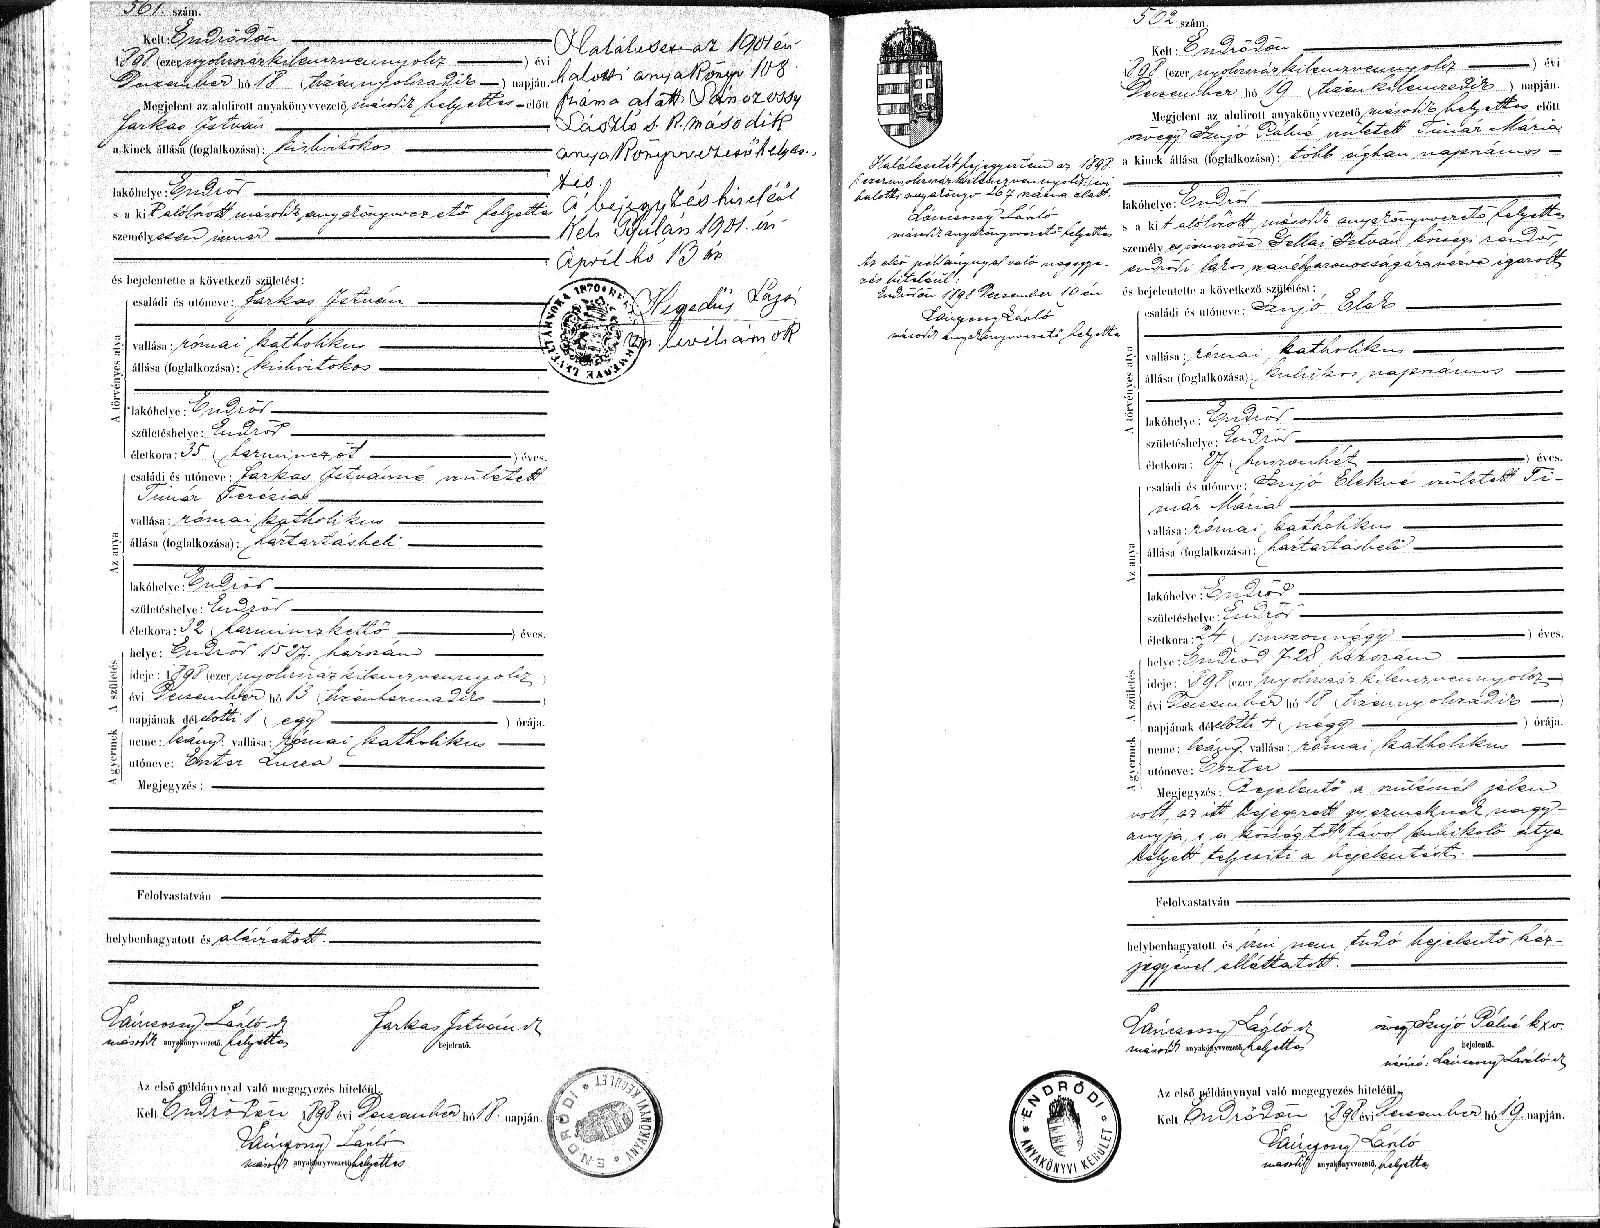 561. szám.
Kelt: Endrődön
1898 (ezer nyolcszázkilenczvennyolcz) évi
Deczember hó 18 (tizennyolczadik) napján.
Megjelent az alulirott anyakönyvvezető, második helyettes előtt
Farkas István
a kinek állása (foglalkozása): kisbirtokos
lakóhelye: Endrőd
s a kit alólirott második anyakönyvvezető helyettes
személyesen ismer
és bejelentette a következő születést:
A törvényes atya
családi és utóneve: Farkas István
vallása: római katholikus
állása (foglalkozása): kisbirtokos
lakóhelye: Endrőd
születéshelye: Endrőd
életkora: 35 (harminczöt) éves.
Az anya
családi és utóneve: Farkas Istvánné született
Timár Terézia
vallása: római katholikus
állása (foglalkozása): háztartásbeli
lakóhelye: Endrőd
születéshelye: Endrőd
életkora: 32 (harminczkettő) éves.
A születés
helye: Endrőd 1527. házszám
ideje: 1898 (ezer nyolcszázkilenczvennyolcz)
évi Deczember hó 13 (tizenharmadik)
napjának délelőtti 1 (egy) órája.
A gyermek
neme: leány. vallása: római katholikus
utóneve: Eszter Lucza
Megjegyzés:
Felolvastatván
helybenhagyatott és aláiratott.
Láncsossy László sk
második anyakönyvvezető. helyettes
Farkas István sk
bejelentő.
Az első példánynyal való megegyezés hiteléül
Kelt Endrődön 1898 évi Deczember hó 18. napján.
második anyakönyvvezető helyettes
ENDRŐDI
ANYAKÖNYVI KERÜLET
az 1901 évi
halotti anyakönyv 108
száma alatt
László s. k. második
anyakönyvvezető helyet-
tes.
A bejegyzés hiteléül
Kelt Gyulán 1901. évi
April hó 13 án
Hegedüs Lajos
vm. levéltárnok
562 szám.
Kelt: Endrődön
1898 (ezer nyolcszázkilenczvennyolcz) évi
Deczember hó 19 (tizenkilenczedik) napján.
Megjelent az alulirott anyakönyvvezető, második helyettes előtt
özvegy Szujó Pálné született Timár Mária
a kinek állása (foglalkozása): több ágban napszámos
lakóhelye: Endrőd
s a kit alólirott második anyakönyvvezető helyettes
személyes ismerőse Gellai István községi rendőr,
endrődi lakos személyazonosságára nézve igazolt
és bejelentette a következő születést:
A törvényes atya
családi és utóneve: Szujó Elek
vallása: római katholikus
állása (foglalkozása): kubikos, napszámos
lakóhelye: Endrőd
születéshelye: Endrőd
életkora: 27 (huszonhét) éves.
Az anya
családi és utóneve: Szujó Elekné született Ti-
már Mária
vallása: római katholikus
állása (foglalkozása): háztartásbeli
lakóhelye: Endrőd
születéshelye: Endrőd
életkora: 24 (huszonnégy) éves.
A születés
helye: Endrőd 728 házszám
ideje: 1898 (ezer nyolcszázkilenczvennyolcz
évi Deczember hó 18 (tizennyolczadik)
napjának délelőtti 4 (négy) órája.
A gyermek
neme: leány. vallása: római katholikus
utóneve: Eszter
Megjegyzés: Bejelentő a szülésnél jelen
volt, az itt bejegyzett gyermeknek nagy-
anyja, s a községtől távol kubikoló atya
helyett teljesiti a bejelentést.
Felolvastatván
helybenhagyatott és irni nem tudó bejelentő kéz-
jegyével elláttatott.
Láncsossy László sk
második anyakönyvvezető. helyettes
özvegy Szujó Pálné kxv.
bejelentő.
Az első példánynyal való megegyezés hiteléül
Kelt Endrődön 1898 évi Deczember hó 19. napján.
második anyakönyvvezető. helyettes
ENDRŐDI
ANYAKÖNYVI KERÜLET
Halálesetét bejegyeztem az 1898
(ezernyolcszázkilenczvennyolcz) évi
halotti anyakönyv 267 száma alatt.
második anyakönyvvezető helyettes
Az első példánynyal való megegye-
zés hiteléül:
Endrődön 1898 Deczember
második anyakönyvvezető helyettes